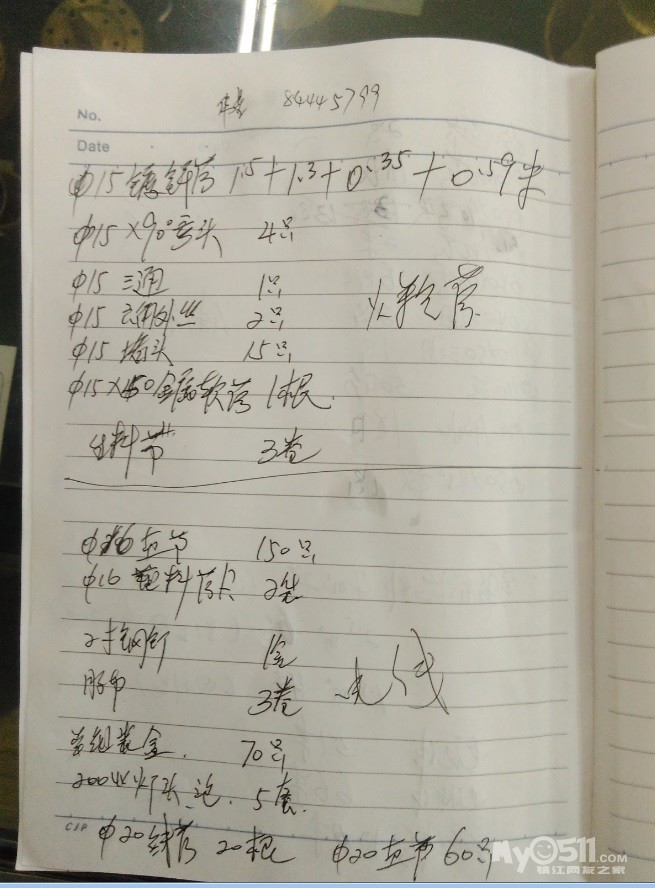 No. 84445799
Date
φ15镀锌管 1.5+1.3+0.35+0.59米
φ15×90°弯头 4只
φ15 三通 1只
φ15 六角外丝 2只 火软管
φ15 堵头 15只
φ15×450金属软管 1根.
生料带 3卷
φ16直节 150只
φ16塑料管卡 2袋
2寸钢钉 1盒
胶布 3卷 电线
装盒. 70只
200W灯头、泡. 5套.
φ20线管 20根 φ20直节 60只
CIP
My0511.com
镇江网友之家